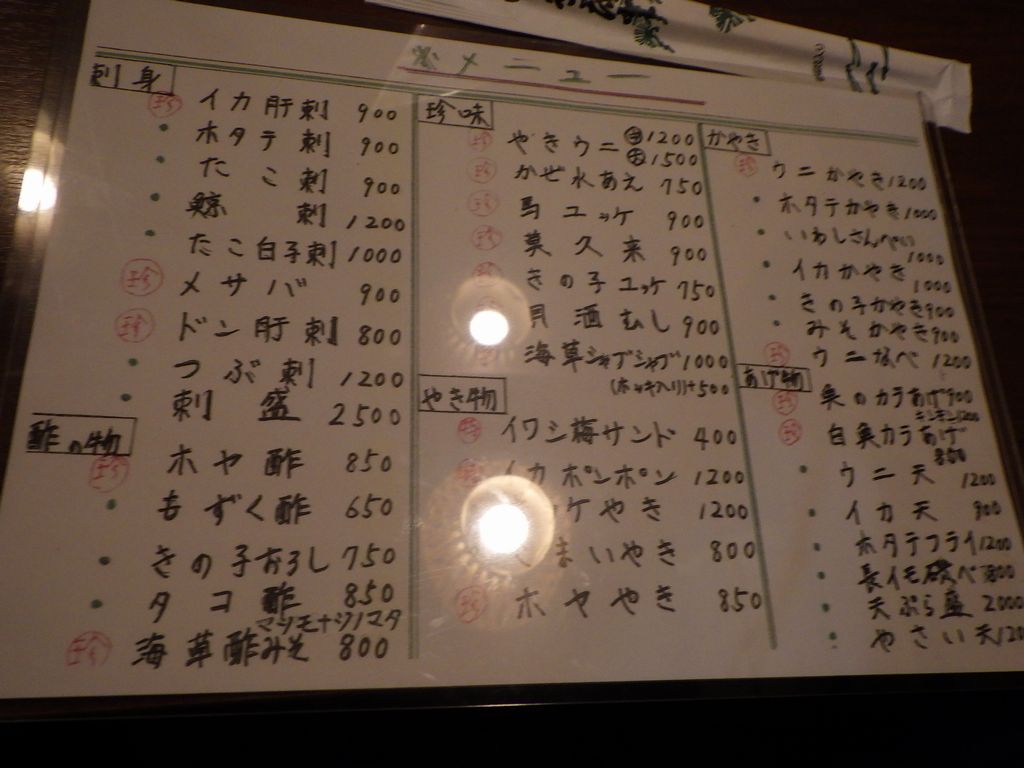 メニュー
刺身
珍 イカ肝刺 900
・ホタテ刺 900
・たこ刺 900
・鯨刺 1200
・たこ白子刺 1000
珍 メサバ 900
珍 ドン肝刺 800
・つぶ刺 1200
・刺盛 2500
酢の物
珍 ホヤ酢 850
・もずく酢 650
・きの子おろし 750
・タコ酢 850
マツモナシノマタ
珍 海草酢みそ 800
珍味
珍 やきウニ 小1200
大1500
珍 かぜ水あえ 750
珍 馬ユッケ 900
珍 莫久来 900
珍 きの子ユッケ 750
貝酒むし 900
海草シャブシャブ 1000
(ホッキ入り)+500
やき物
珍 イワシ梅サンド 400
イカポンポン 1200
ケやき 1200
まいやき 800
珍 ホヤやき 850
かやき
珍 ウニかやき 1200
・ホタテかやき 1000
・いわしさんぺい
1000
・イカかやき
1000
・きの子かやき 900
・みそかやき 900
珍 ウニなべ 1200
あげ物
珍 魚のカラあげ 900
キンキン1200
珍 白魚カラあげ
800
・ウニ天 1200
・イカ天 900
・ホタテフライ 1200
・長イモ磯べ 800
・天ぷら盛 2000
・やさい天